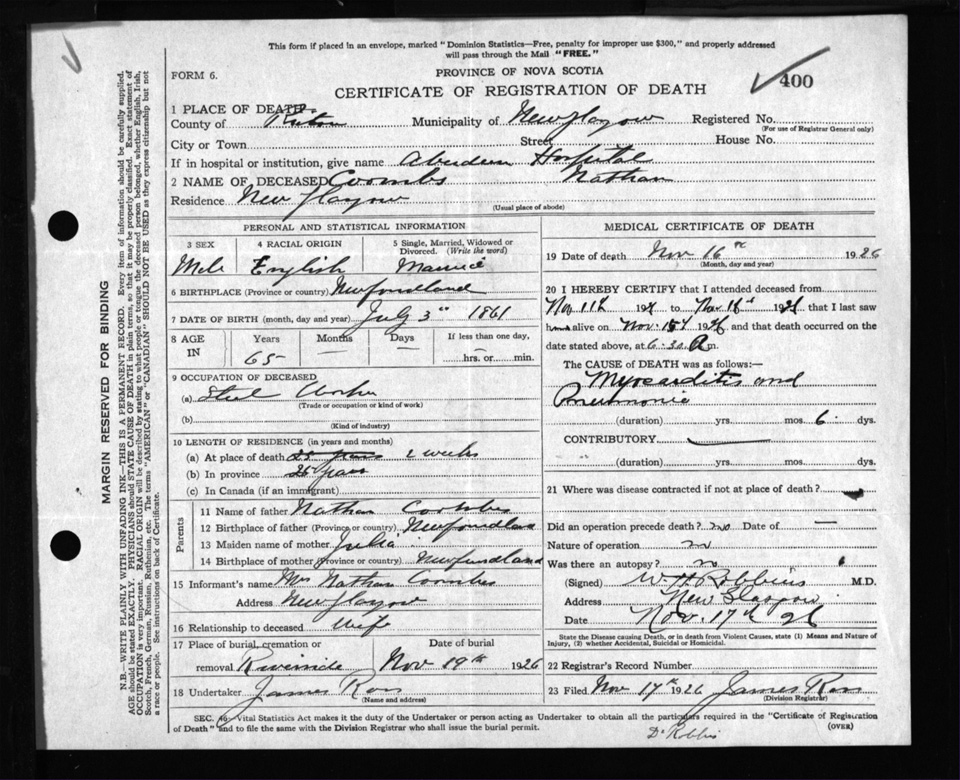 This form if placed in an envelope, marked "Dominion Statistics—Free, penalty for improper use $300," and properly addressed
will pass through the Mail "FREE."
FORM 6.
PROVINCE OF NOVA SCOTIA
400
CERTIFICATE OF REGISTRATION OF DEATH
1 PLACE OF DEATH
County of Pictou Municipality of New Glasgow Registered No.
(For use of Registrar General only)
City or Town Street House No.
If in hospital or institution, give name Aberdeen Hospital
2 NAME OF DECEASED Coombs Nathan
Residence New Glasgow
(Usual place of abode)
PERSONAL AND STATISTICAL INFORMATION
3 SEX 4 RACIAL ORIGIN 5 Single, Married, Widowed or
Divorced. (Write the word)
Male English Married
6 BIRTHPLACE (Province or country) Newfoundland
7 DATE OF BIRTH (month, day and year) July 3rd 1861
8 AGE Years Months Days If less than one day,
IN 65 — — hrs. or min.
9 OCCUPATION OF DECEASED
(a) Steel Worker
(Trade or occupation or kind of work)
(b)
(Kind of industry)
10 LENGTH OF RESIDENCE (in years and months)
(a) At place of death 25 years 2 weeks
(b) In province 25 years
(c) In Canada (if an immigrant)
Parents
11 Name of father Nathan Coombs
12 Birthplace of father (Province or country) Newfoundland
13 Maiden name of mother Julia
14 Birthplace of mother (Province or country) Newfoundland
15 Informant's name Mrs Nathan Coombs
Address New Glasgow
16 Relationship to deceased Wife
17 Place of burial, cremation or Date of burial
removal Riverside Nov 19th 1926
18 Undertaker James Ross
(Name and address)
MEDICAL CERTIFICATE OF DEATH
19 Date of death Nov 16th 1926
(Month, day and year)
20 I HEREBY CERTIFY that I attended deceased from
Nov 11th 1926 to Nov 16th 1926 that I last saw
him alive on Nov. 15th 1926 and that death occurred on the
date stated above, at 6.30 A m.
The CAUSE OF DEATH was as follows:—
Myocarditis and
Pneumonia
(duration) yrs. mos 6 dys.
CONTRIBUTORY
(duration) yrs. mos. dys.
21 Where was disease contracted if not at place of death?
Did an operation precede death? no Date of —
Nature of operation
Was there an autopsy? no
(Signed) W H Robbins M.D.
Address New Glasgow
Date Nov. 17th 26
State the Disease causing Death, or in death from Violent Causes, state (1) Means and Nature of
Injury, (2) whether Accidental, Suicidal or Homicidal.
22 Registrar's Record Number
23 Filed Nov 17th 1926 James Ross
(Division Registrar)
SEC. 46 Vital Statistics Act makes it the duty of the Undertaker or person acting as Undertaker to obtain all the particulars required in the "Certificate of Registration
of Death" and to file the same with the Division Registrar who shall issue the burial permit.
(OVER)
MARGIN RESERVED FOR BINDING
N.B.—WRITE PLAINLY WITH UNFADING INK—THIS IS A PERMANENT RECORD. Every item of information should be carefully supplied.
AGE should be stated EXACTLY. PHYSICIANS should STATE CAUSE OF DEATH in plain terms, so that it may be properly classified. Exact statement of
OCCUPATION is very important. RACIAL ORIGIN will be described by stating to what people or tongue the deceased person belonged, whether English, Irish,
Scotch, French, German, Russian, Ruthenian, etc. The terms "AMERICAN" or "CANADIAN" SHOULD NOT BE USED as they express citizenship but not
a race or people. See instructions on back of Certificate.